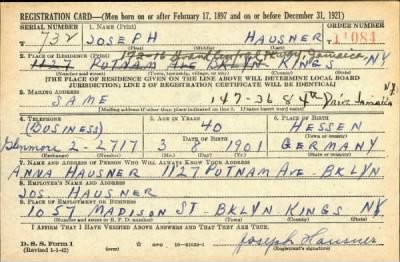 REGISTRATION CARD—(Men born on or after February 17, 1897 and on or before December 31, 1921)
SERIAL NUMBER 1. NAME (Print) ORDER NUMBER
732 JOSEPH HAUSNER 11084
(First) (Middle) (Last)
Jamaica
2. PLACE OF RESIDENCE (Print)
1127 PUTNAM AVE BKLYN KINGS NY
(Number and street) (Town, township, village, or city) (County) (State)
[THE PLACE OF RESIDENCE GIVEN ON THE LINE ABOVE WILL DETERMINE LOCAL BOARD
JURISDICTION; LINE 2 OF REGISTRATION CERTIFICATE WILL BE IDENTICAL]
N.Y.
3. MAILING ADDRESS
SAME 147-36 84th Jamaica
[Mailing address if other than place indicated on line 2. If same insert word same]
4. TELEPHONE 5. AGE IN YEARS 6. PLACE OF BIRTH
(BUSINESS) 40 HESSEN
DATE OF BIRTH (Town or county)
Glenmore 2-2717 3 8 1901 GERMANY
(Exchange) (Number) (Mo.) (Day) (Yr.) (State or country)
7. NAME AND ADDRESS OF PERSON WHO WILL ALWAYS KNOW YOUR ADDRESS
ANNA HAUSNER 1127 PUTNAM AVE - BKLYN
8. EMPLOYER'S NAME AND ADDRESS
JOS. HAUSNER
9. PLACE OF EMPLOYMENT OR BUSINESS
1057 MADISON ST - BKLYN KINGS NY
(Number and street or R. F. D. number) (Town) (County) (State)
I AFFIRM THAT I HAVE VERIFIED ABOVE ANSWERS AND THAT THEY ARE TRUE.
D. S. S. Form 1
(Revised 1-1-42) Joseph Hausner
(Registrant's signature)